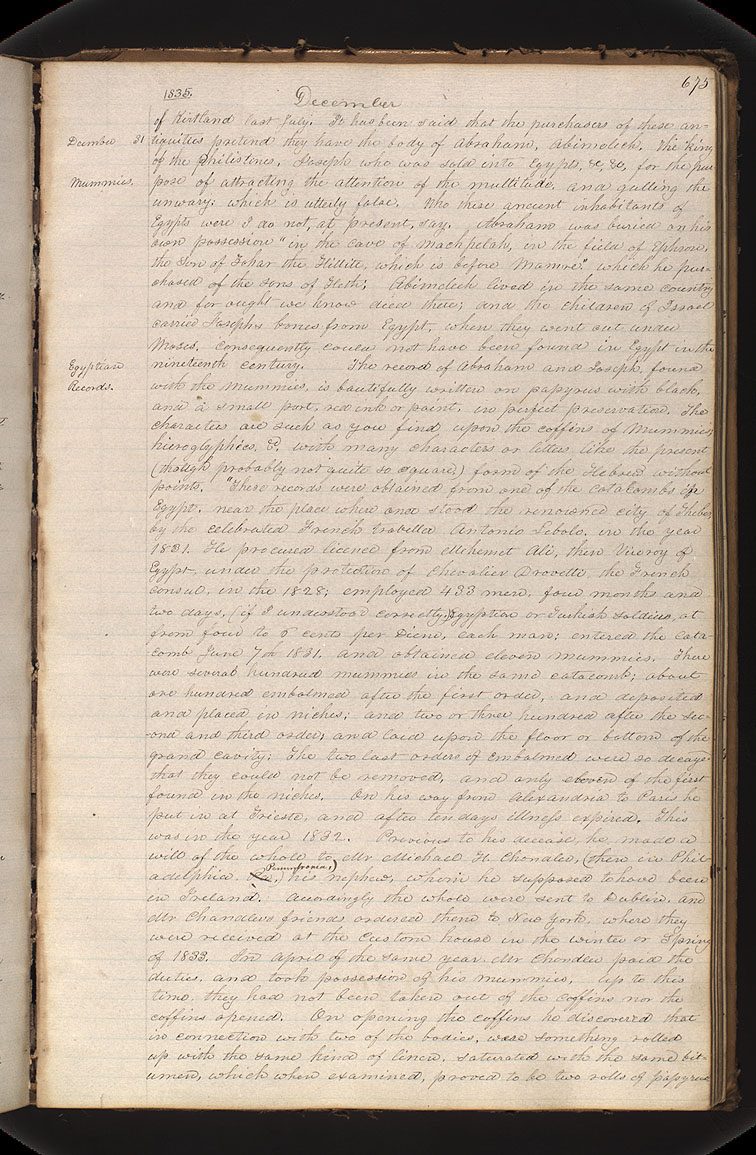 1835.
December
675
of Kirtland last July. It has been said that the purchasers of these an-
December 31
tiquities pretend they have the body of Abraham, Abimelech, the King
of the Philistines, Joseph who was sold into Egypt, &c, &c, for the pur
Mummies.
pose of attracting the attention of the multitude, and gulling the
unwary: which is utterly false. Who these ancient inhabitants of
Egypt were I do not, at present, say. Abraham was buried on his
own possession "in the cave of Machpelah, in the field of Ephron,
the son of Zohar the Hittite, which is before Mamre," which he pur-
chased of the sons of Heth; Abimelech lived in the same country
and for ought we know died there; and the children of Israel
carried Josephs bones from Egypt, when they went out under
Moses. consequently could not have been found in Egypt in the
Egyptian
nineteenth century. The record of Abraham and Joseph, found
Records.
with the mummies, is bautifully written on papyrus with black,
and a small part, red ink or paint, in perfect preservation. The
characters are such as you find upon the coffins of mummies,
hieroglyphics, &c. with many characters or letters like the present
(though probably not quite so square,) form of the Hebrew without
points. "These records were obtained from one of the catacombs in
Egypt, near the place where once stood the renowned city of Thebes,
by the celebrated French traveller Antonio Lebolo, in the year
1831. He procured licence from Mehemet Ali, then Viceroy of
Egypt, under the protection of Chevalier Drovetti, the French
Consul, in the 1828; employed 433 men, four months and
two days, (if I understood correctly) Egyptian or Turkish soldiers, at
from four to 6 cents per Diem, each man; entered the cata-
comb June 7th 1831, and obtained eleven mummies. There
were several hundred mummies in the same catacomb; about
one hundred embalmed after the first order, and deposited
and placed in niches; and two or three hundred after the sec-
ond and third orders, and laid upon the floor or bottom of the
grand cavity: The two last orders of embalmed were so decayed
that they could not be removed, and only eleven of the first
found in the niches. On his way from Alexandria to Paris he
put in at Trieste, and after ten days illness expired. This
was in the year 1832. Previous to his decease, he made a
will of the whole to Mr Michael H. Chandler, (then in Phil-
Pennsylvania,)
adelphia Pa,) his nephew, whom he supposed to have been
in Ireland. Accordingly the whole were sent to Dublin, and
Mr Chandlers friends ordered them to New York, where they
were received at the custom house in the winter or Spring
of 1833. In April of the same year Mr Chandler paid the
duties, and took possession of his mummies, up to this
time, they had not been taken out of the coffins nor the
coffins opened. On opening the coffins he discovered that
in connection with two of the bodies, were something rolled
up with the same kind of linen, saturated with the same bit-
umen, which when examined, proved to be two rolls of papyrus